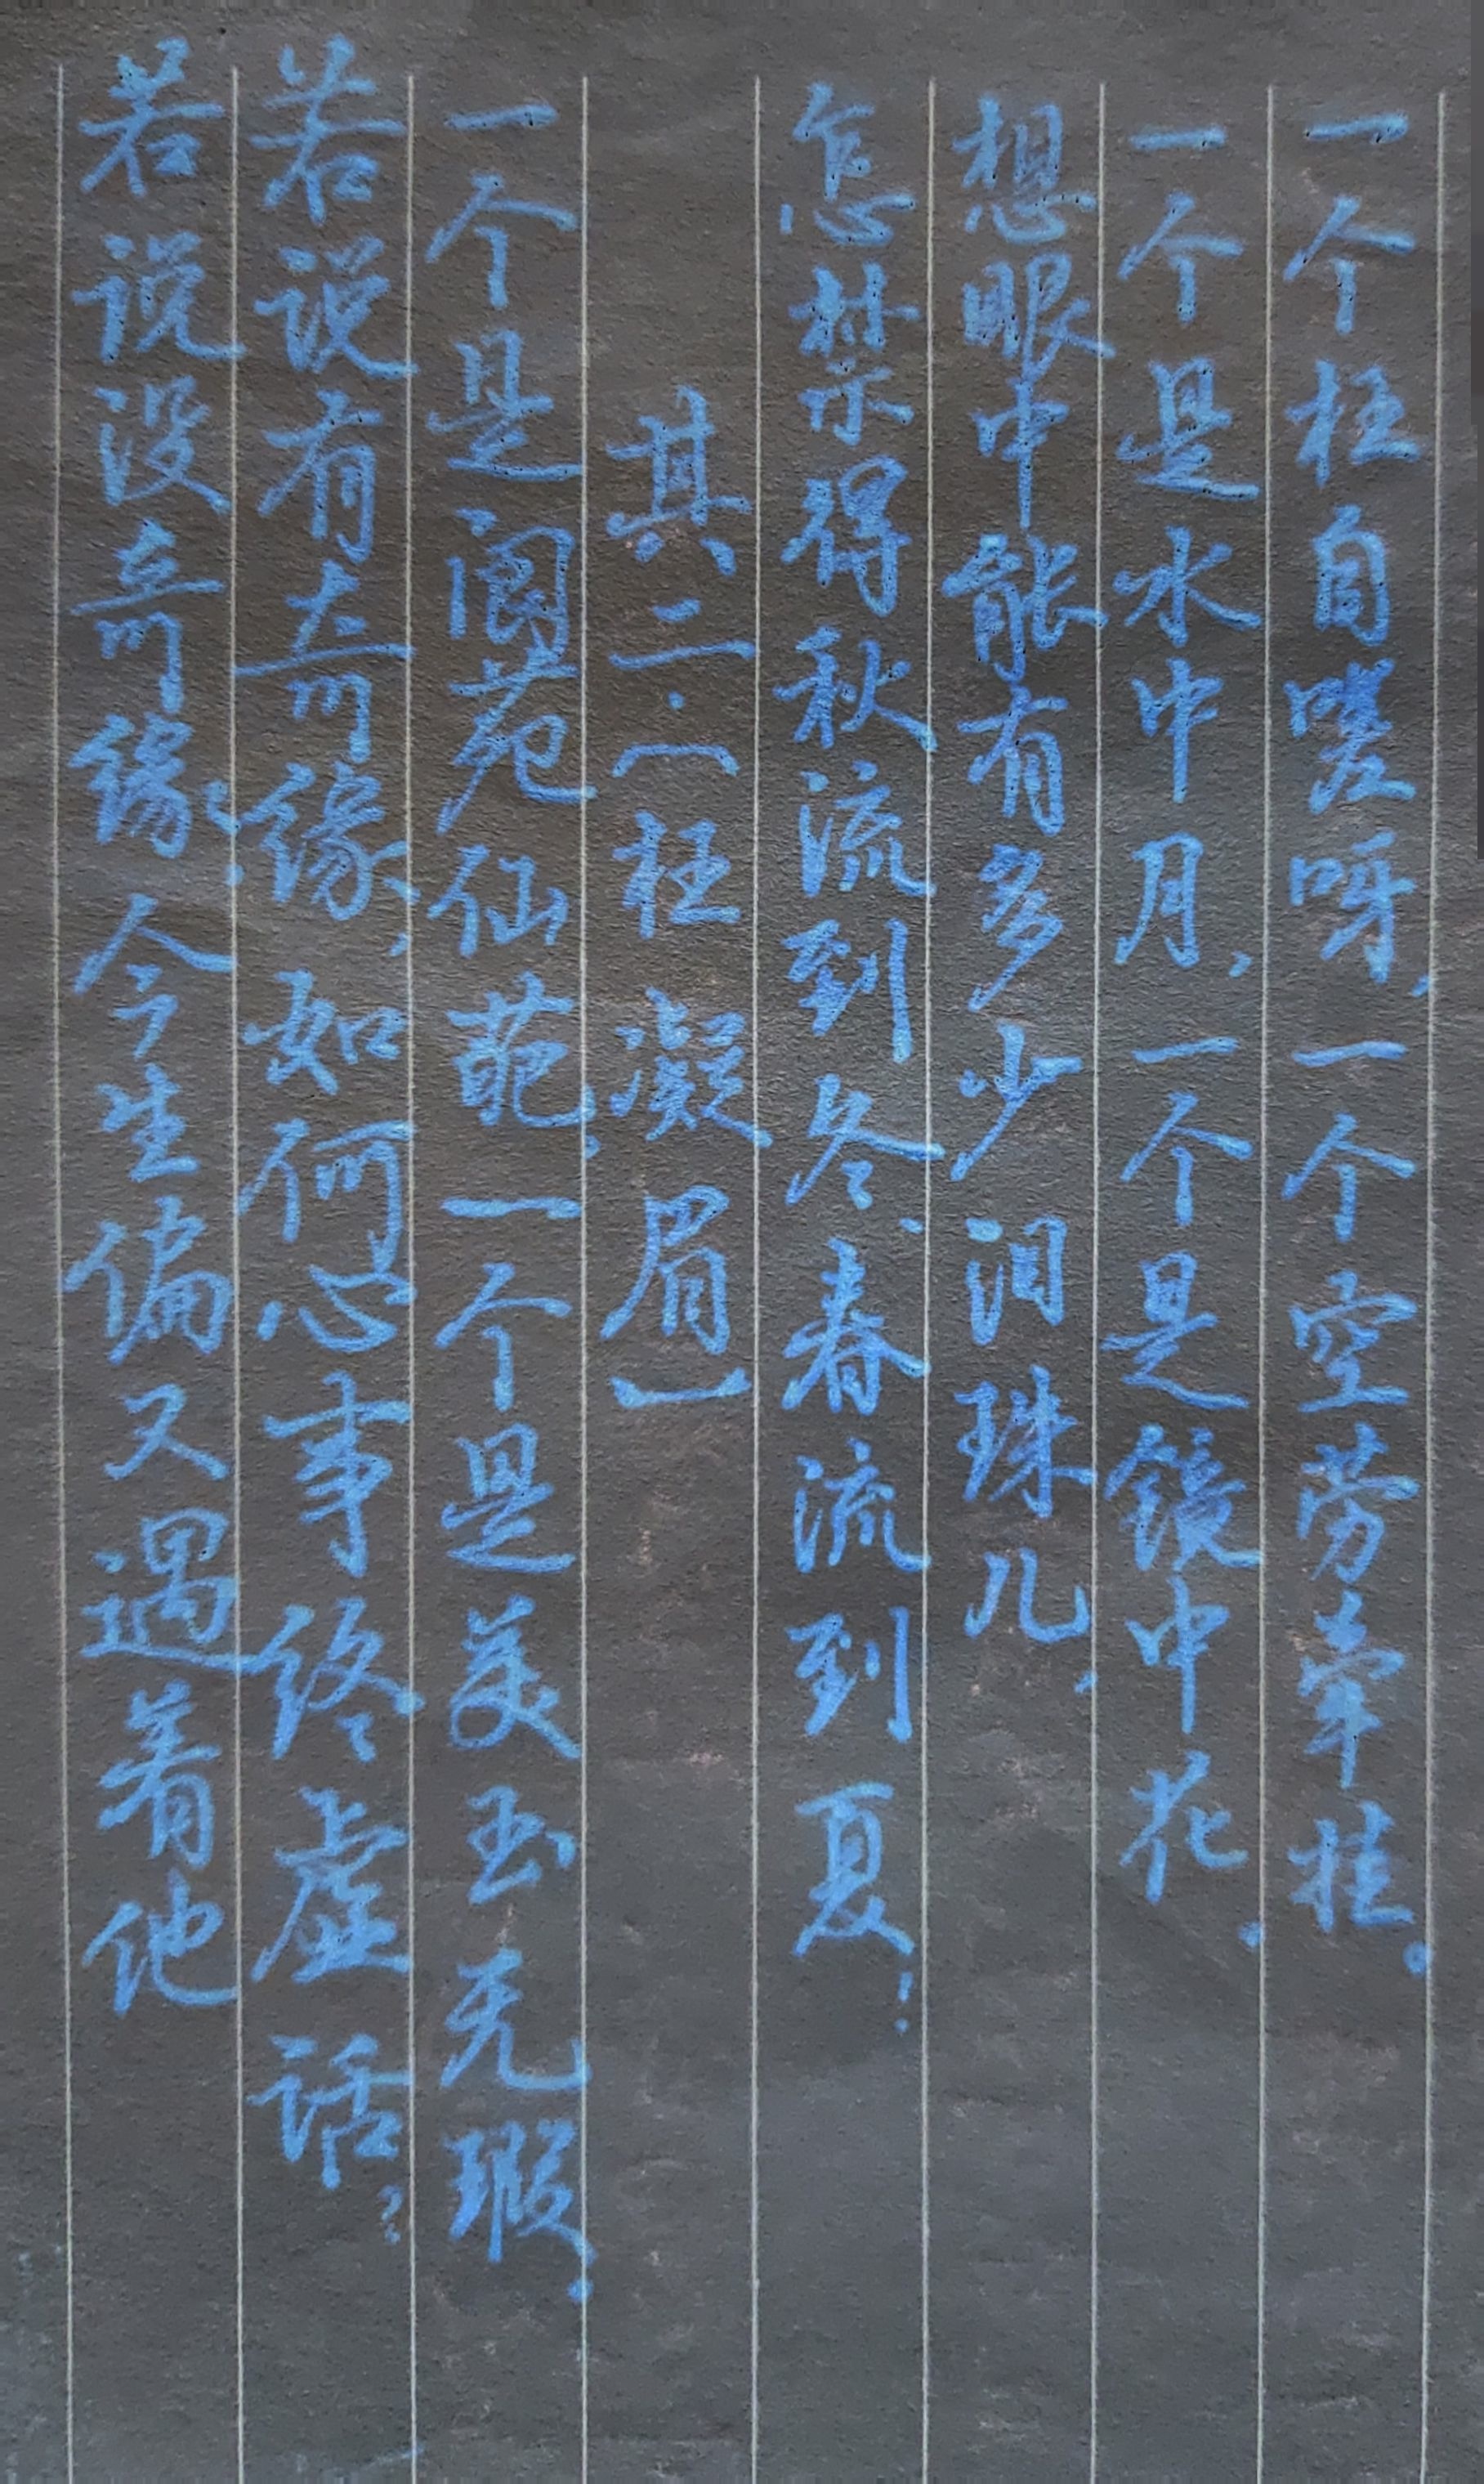 一个枉自嗟呀，一个空劳牵挂。
一个是水中月，一个是镜中花。
想眼中能有多少泪珠儿，
怎禁得秋流到冬、春流到夏！
其二·〔枉凝眉〕
一个是阆苑仙葩；一个是美玉无瑕。
若说有奇缘，如何心事终虚话？
若说没奇缘；今生偏又遇着他